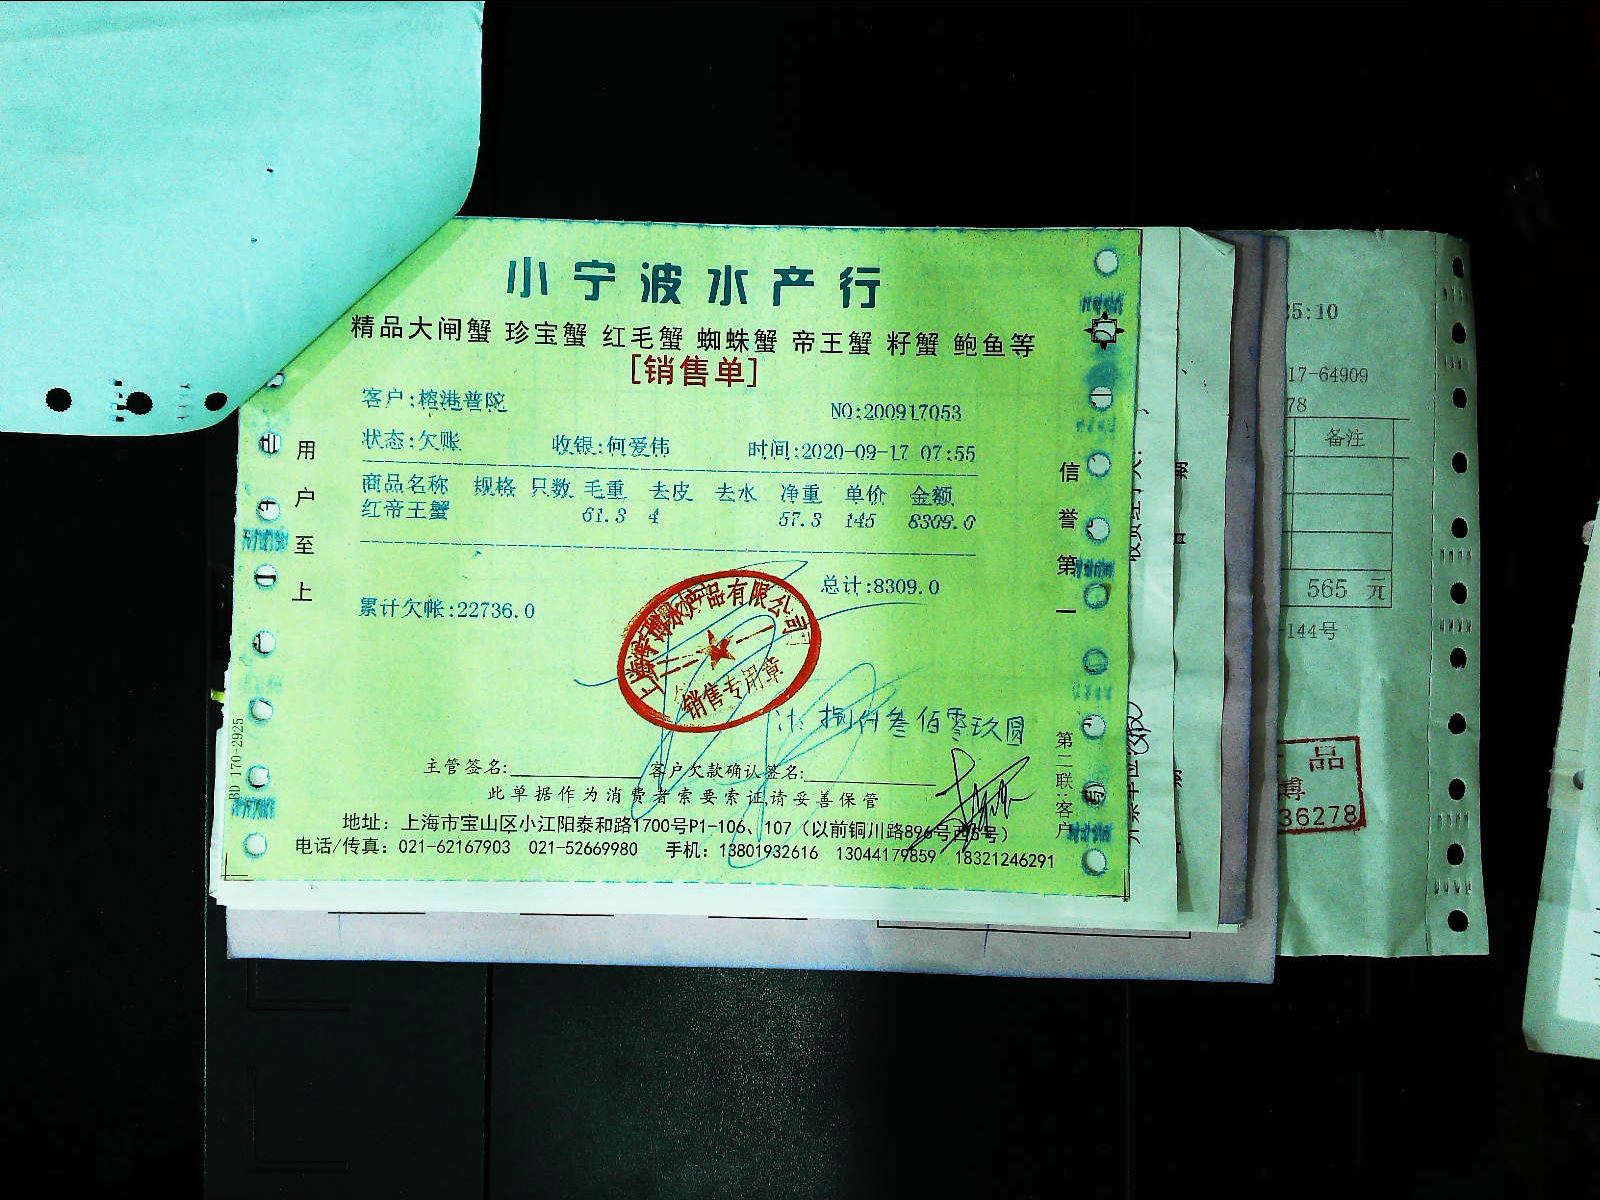 小宁波水产行
精品大闸蟹 珍宝蟹 红毛蟹 蜘蛛蟹 帝王蟹 籽蟹 鲍鱼等
[销售单]
客户:榕港普陀 NO:200917053
状态:欠账 收银:何爱伟 时间:2020-09-17 07:55
商品名称 规格 只数 毛重 去皮 去水 净重 单价 金额
红帝王蟹 61.3 4 57.3 145 8309.0
总计:8309.0
累计欠帐:22736.0
用户至上
信誉第一
水产品有限公司
销售专用章
捌仟叁佰零玖圆
主管签名: 客户欠款确认签名:
此单据作为消费者索要索证,请妥善保管
地址：上海市宝山区小江阳泰和路1700号P1-106、107（以前铜川路896号
电话/传真：021-62167903 021-52669980 手机：13801932616 13044179859 18321246291
第二联:客户
BD 170-2925
25:10
17-64909
78
备注
565 元
-144号
品
博
36278